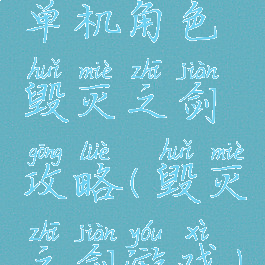 单机角色
huǐ miè zhī jiàn
毁灭之剑
gōng lüè huǐ miè
攻略(毁灭
zhī jiàn yóu xì
之剑游戏)